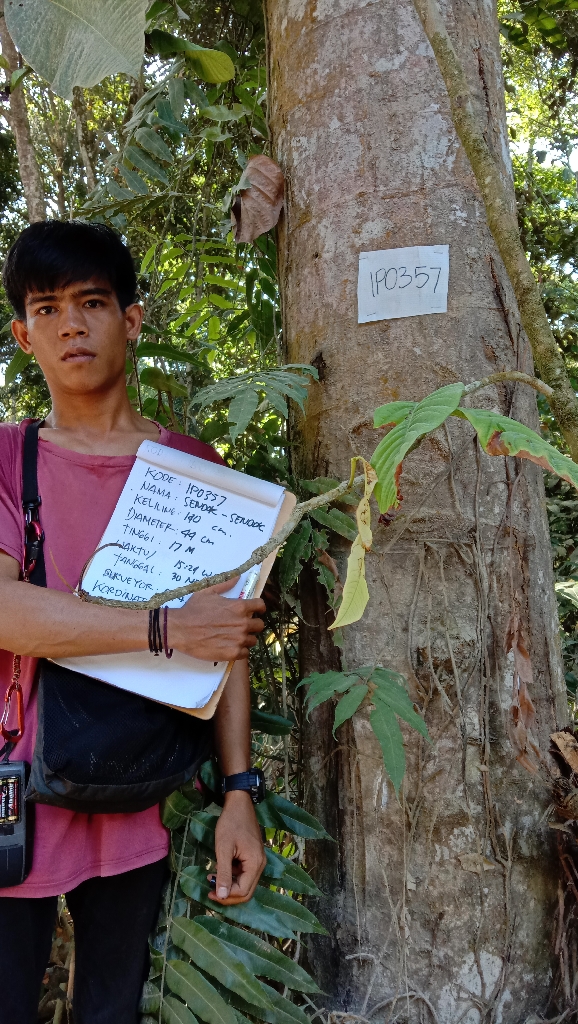 1P0357
KODE : 1P0357
NAMA : SENDOK - SENDOK
KELILING : 140 cm.
DIAMETER : 44 cm
TINGGI : 17 M
WAKTU : 15:29
TANGGAL : 30
SURVEYOR
KORDINAT